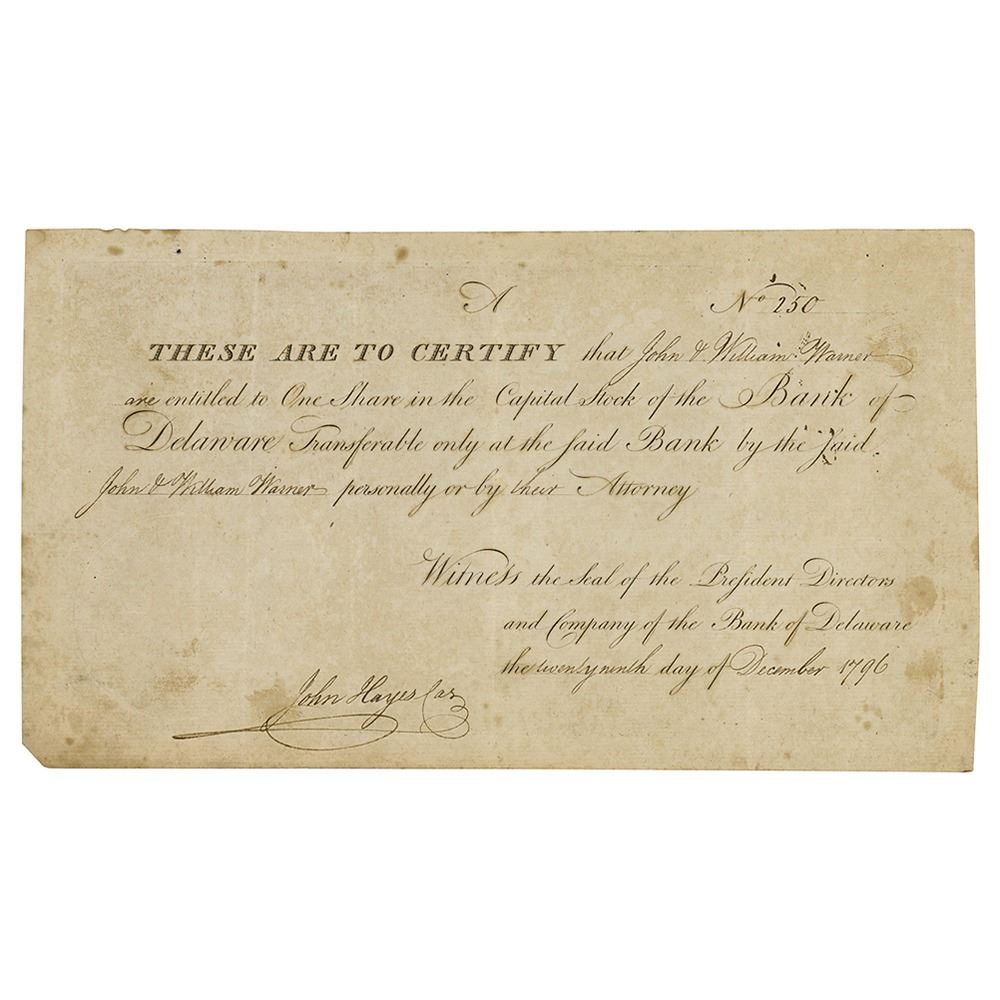 A
No 250
THESE ARE TO CERTIFY that John & William Warner
are entitled to One Share in the Capital Stock of the Bank of
Delaware Transferable only at the said Bank by the said
John & William Warner personally or by their Attorney
Witness the Seal of the President Directors
and Company of the Bank of Delaware
the twenty ninth day of December 1796
John Hayes Cas